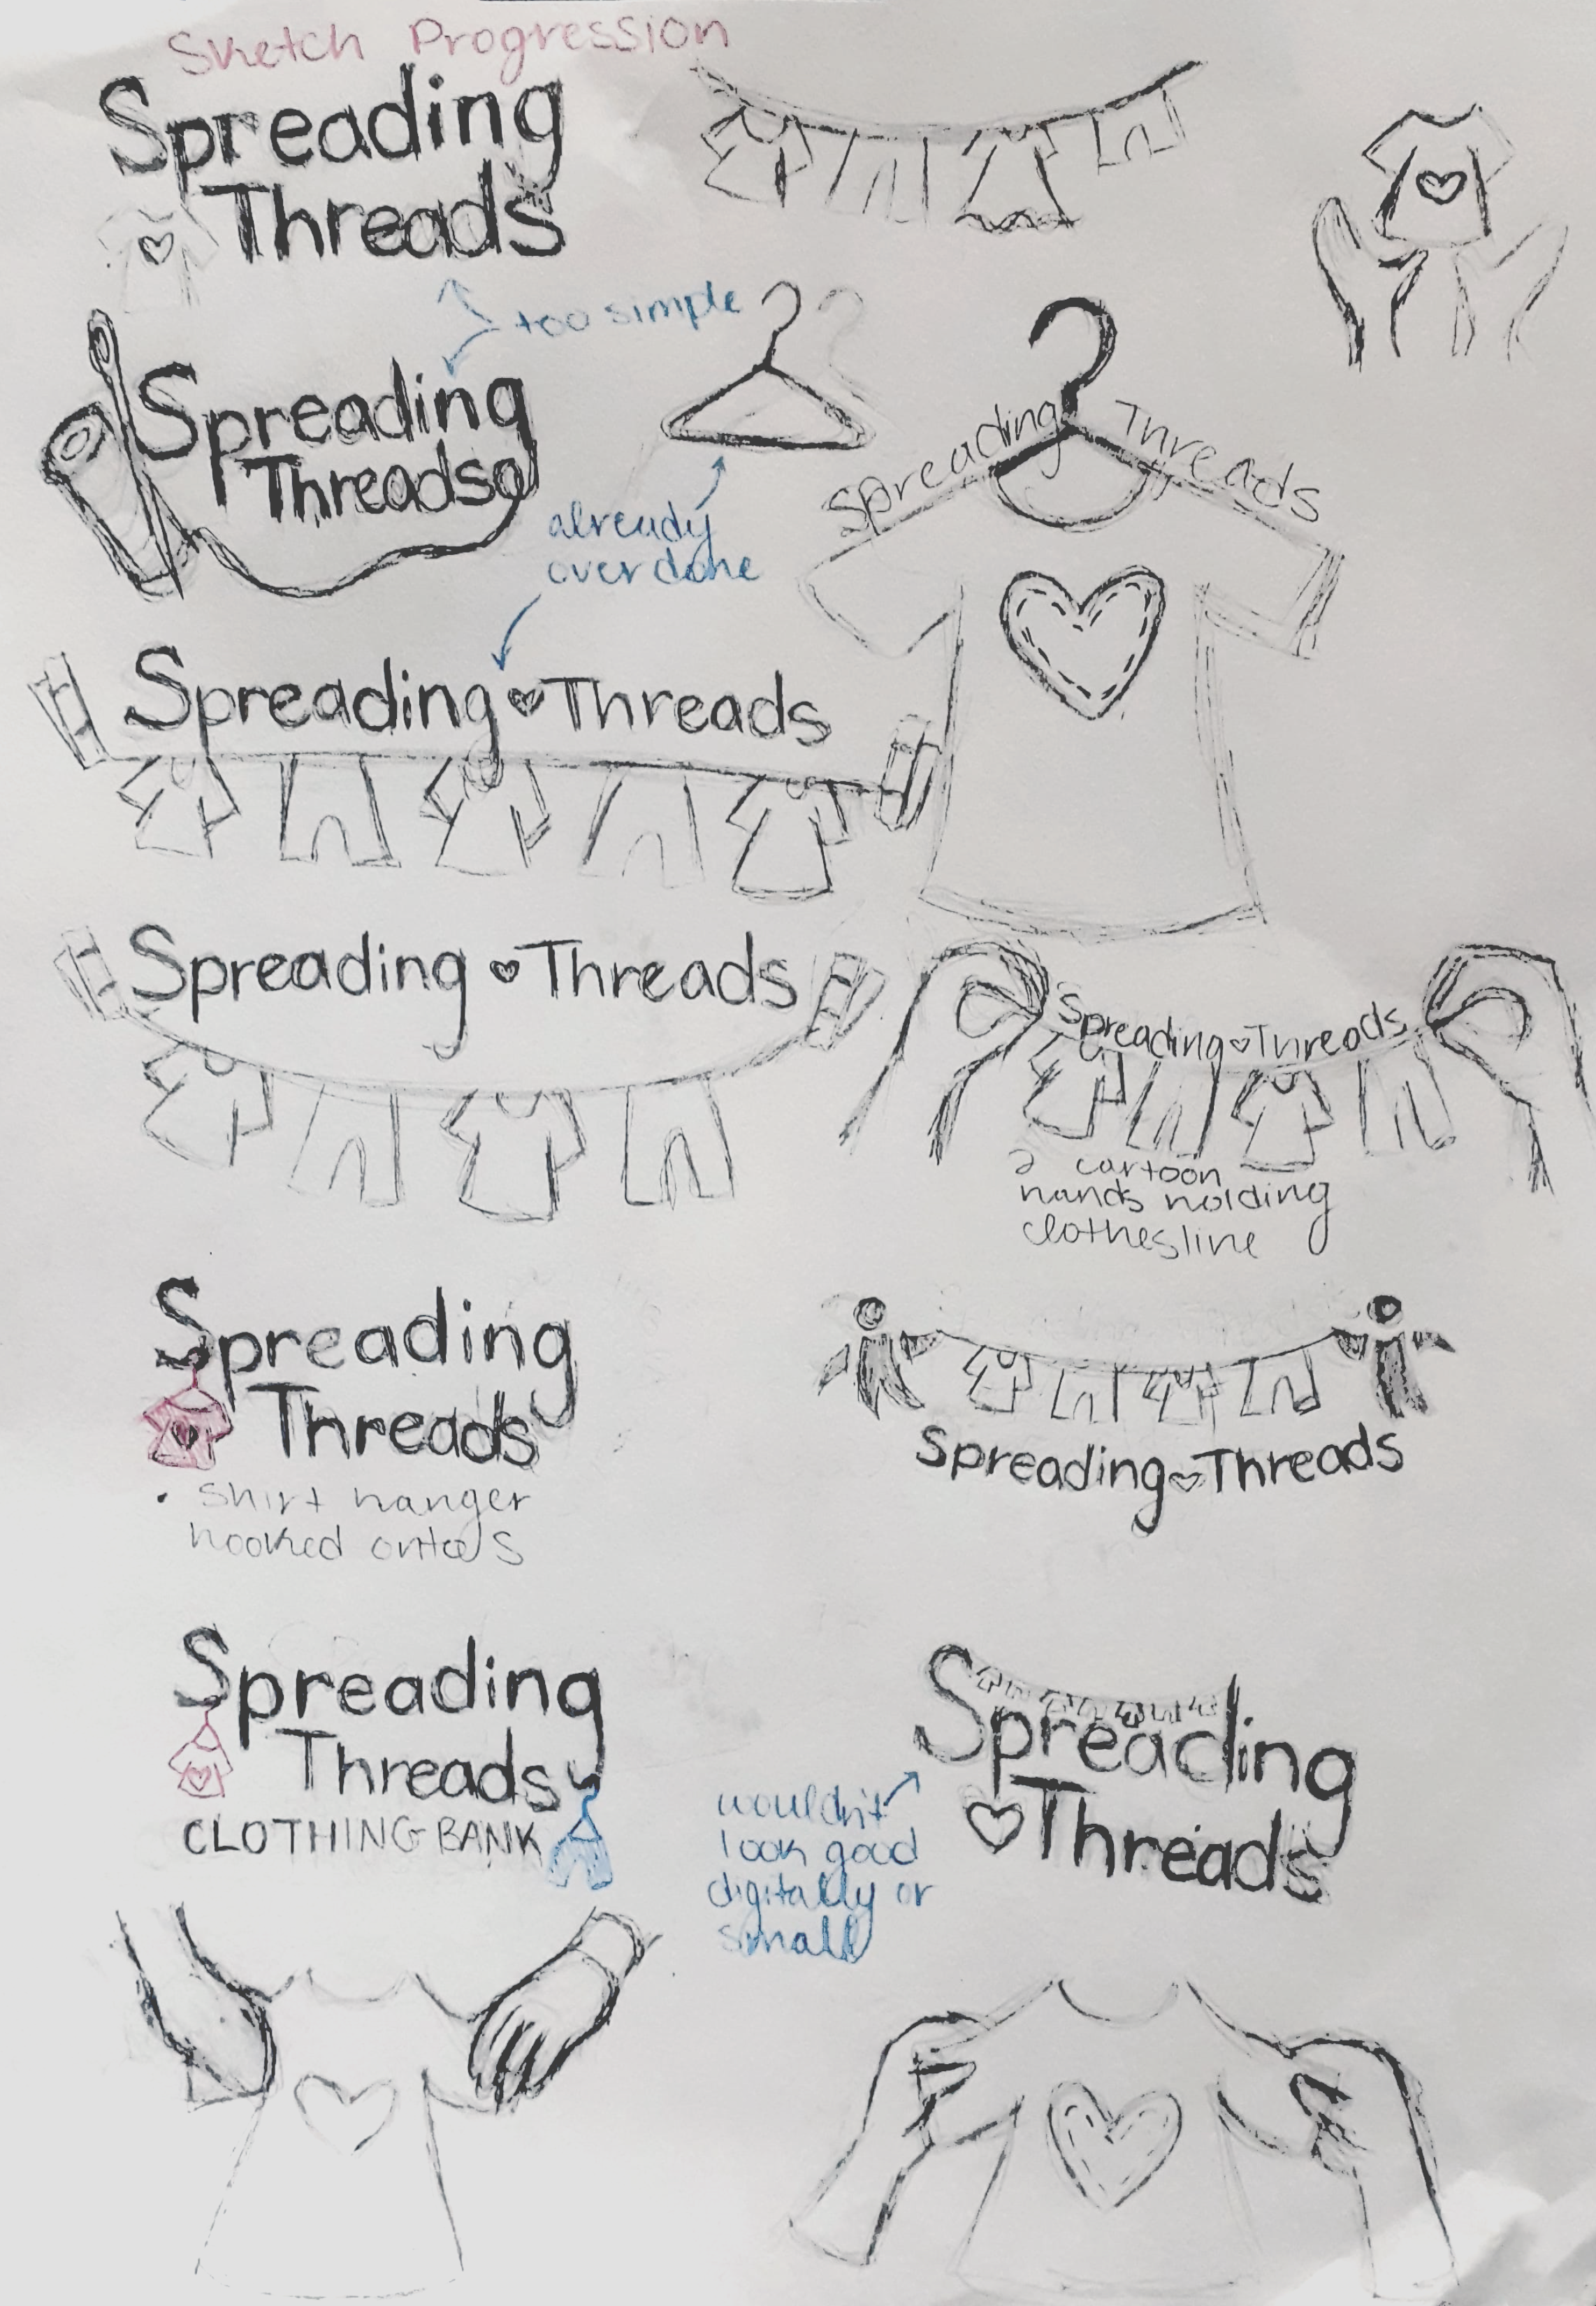 Sketch Progression
Spreading
Threads
too simple
Spreading
Threads
Spreading Threads
already
overdone
Spreading Threads
Spreading Threads
Spreading Threads
2 cartoon
hands holding
clothesline
Spreading
Threads
• Shirt hanger
hooked onto S
Spreading Threads
Spreading
Threads
CLOTHING BANK
Spreading
Threads
wouldn't
look good
digitally or
small